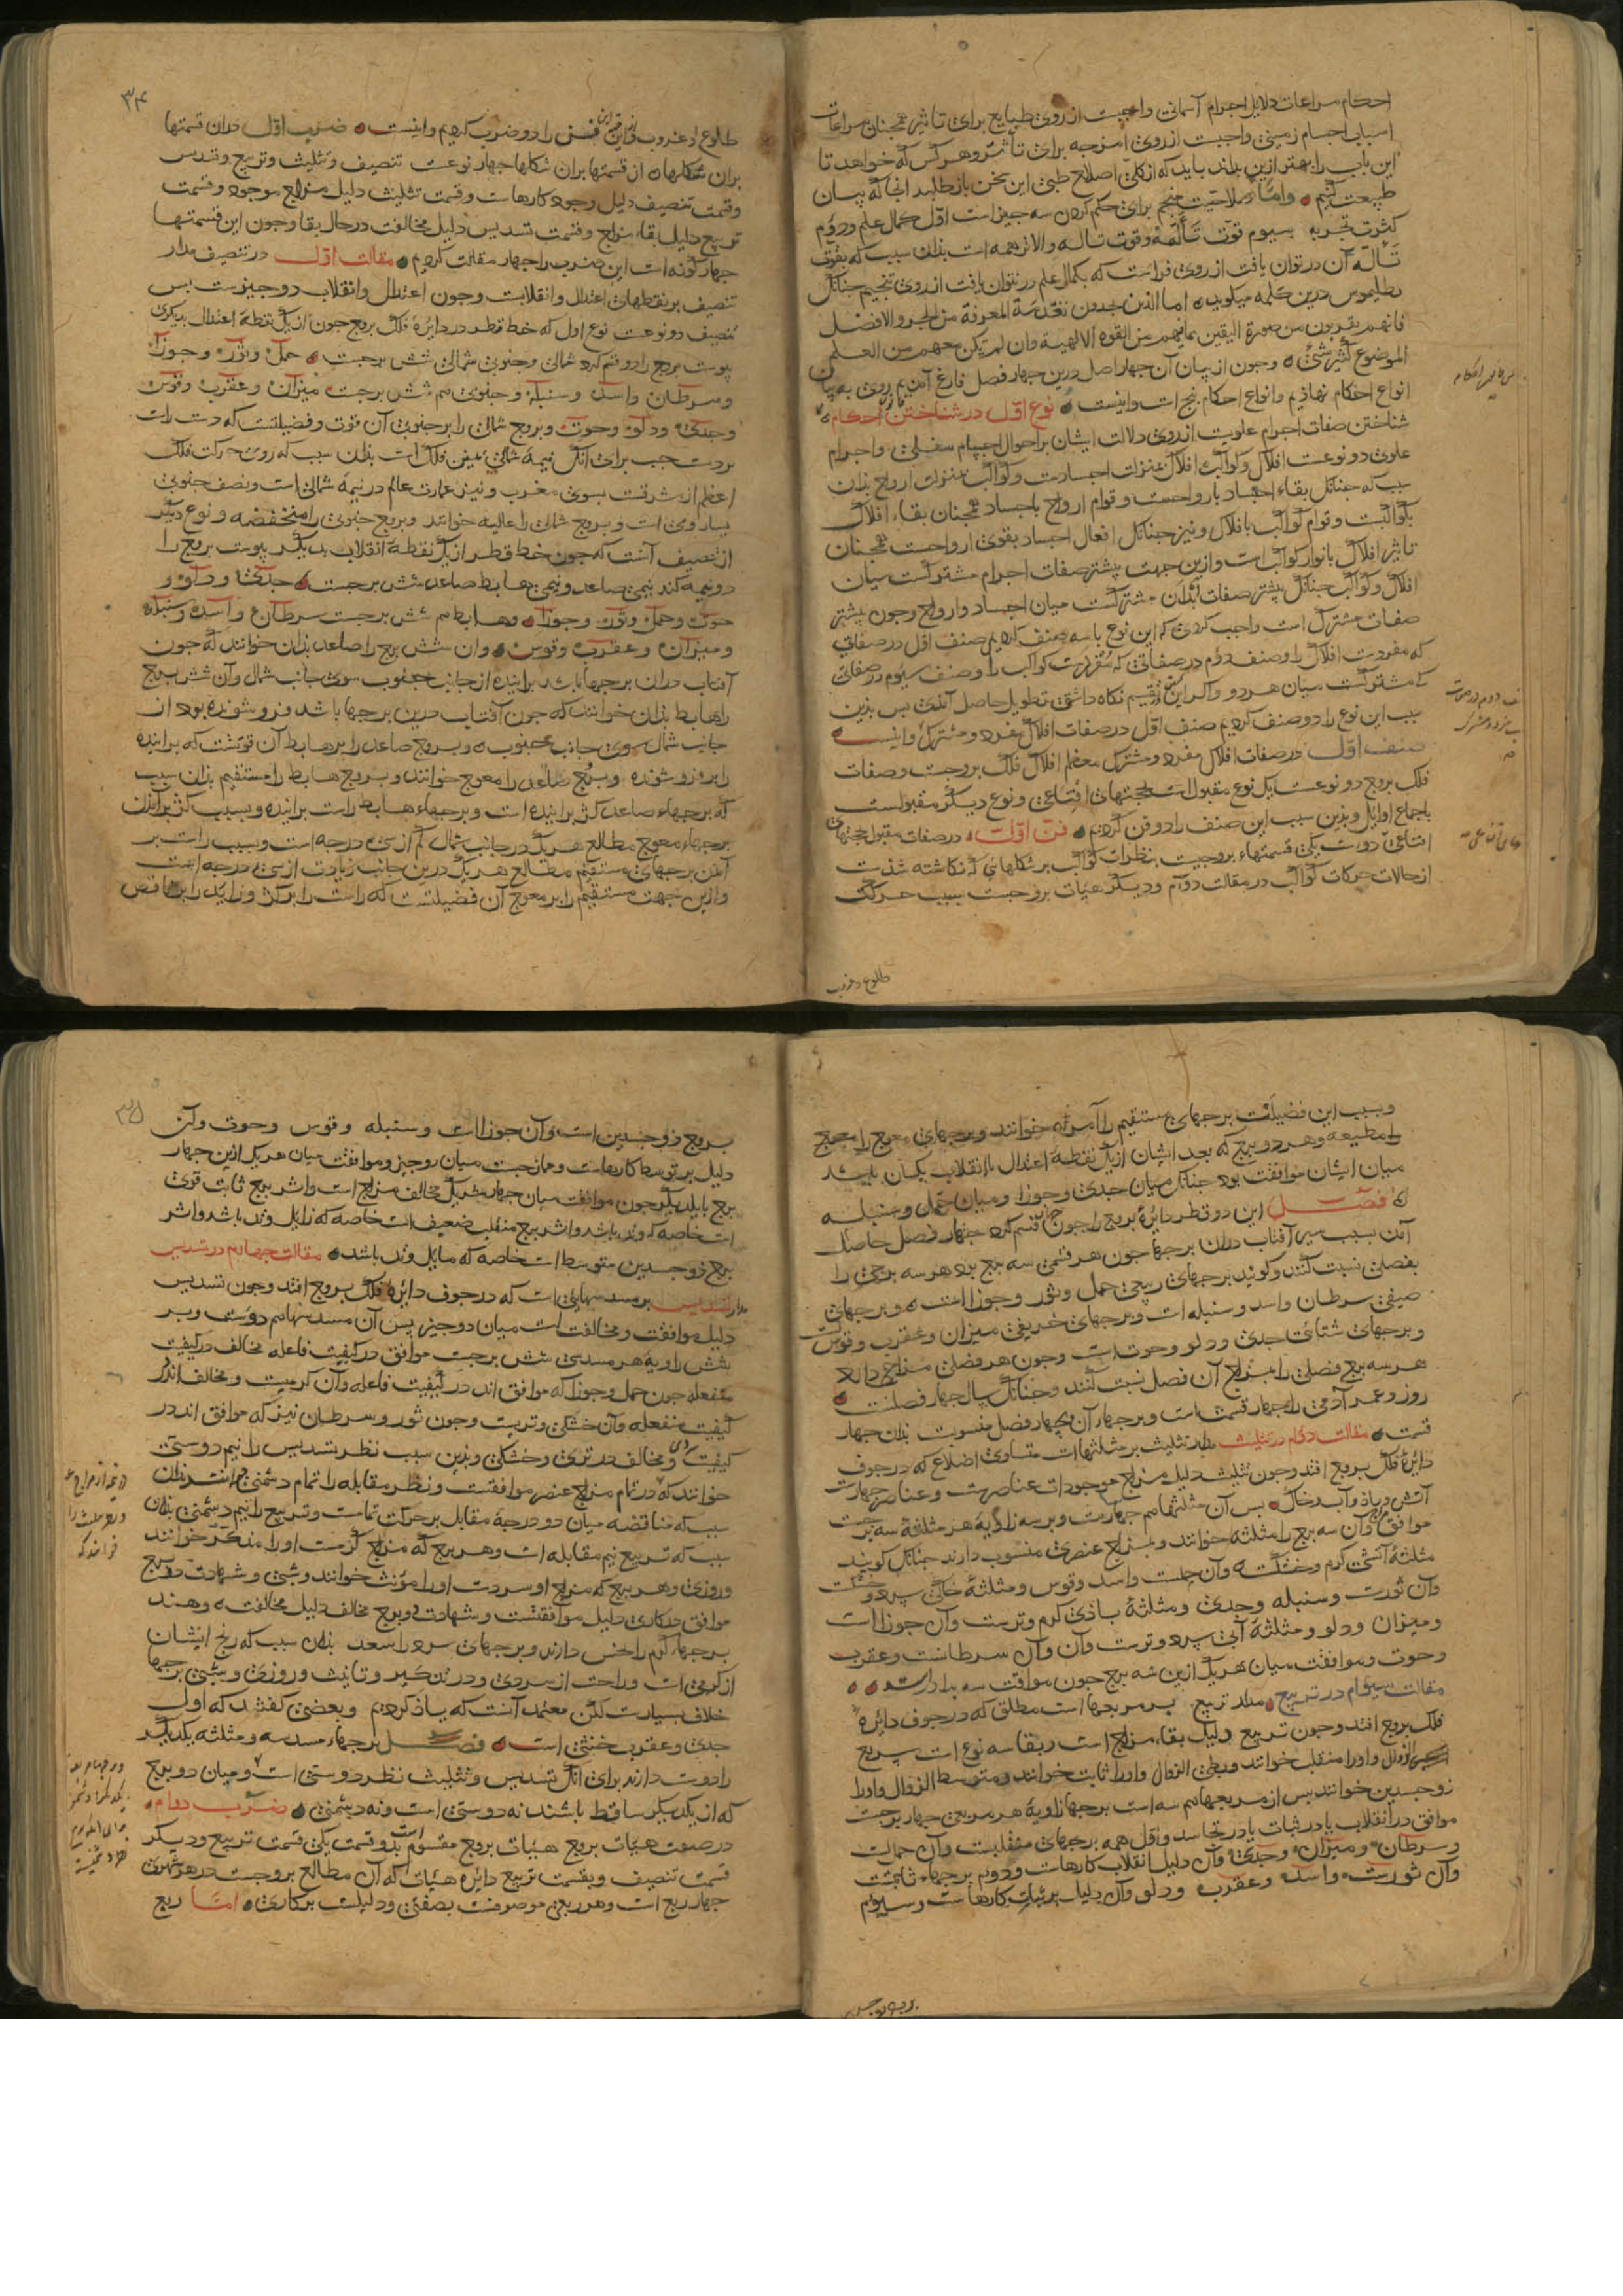 احکام مراعات دلایل اجرام آسمانی واجبست از روی طبایع برای تاثیر همچنان مراعات
اسباب اجسام زمینی واجبست از روی امزجه برای تاثر و هرکس که خواهد تا
این باب را بهتر ازین بداند باید که از کلی اصلاح طبی این سخن باز طلبد آنجا که بیان
طبیعت کنیم واما صلاحیت منجم برای حکم کردن سه چیز است اول کمال علم و دوم
کثرت تجربه سیوم قوت تاله وقوت تاله والاتر همه است بدان سبب که بقوت
تاله آن در توان یافت از روی فراست که بکمال علم در نتوان یافت از روی تنجیم چنانک
بطلمیوس درین کلمه میکوید اما الذین یجدون تقدمة المعرفة من الجزو الافضل
فانهم یقربون من صورة الیقین بما فیهم من القوه الالهیة وان لم یکن معهم من العلم
الموضوع کثیر شئ وجون از بیان آن جهار اصل درین جهار فصل فارغ آمدیم روی به بیان
انواع احکام نهاذیم وانواع احکام پنج است واینست نوع اول در شناختن احکام
شناختن صفات اجرام علویست از روی دلالت ایشان بر احوال اجسام سفلی واجرام
علوی دو نوعست افلاک وکواکب افلاک بمنزلت اجسادست وکواکب بمنزلت ارواح بذان
سبب که جنانک بقاء اجساد بارواحست وقوام ارواح باجساد همجنان بقاء افلاک
بکواکبست وقوام کواکب بافلاک ونیز جنانک افعال اجساد بقوی ارواحست همجنان
تاثیر افلاک بانوار کواکب است وازین جهت بیشتر صفات اجرام مشترکست میان
افلاک وکواکب جنانک بیشتر صفات ابدان مشترکست میان اجساد وارواح وجون بیشتر
صفات مشترک است واجب کردی که این نوع باسه صنف کردیم صنف اول در صفاتی
که مفردست افلاک را وصنف دوم در صفاتی که مفردست کواکب را وصنف سیوم در صفاتی
که مشترکست میان هر دو واکر این تقسیم نکاه داشتی تطویل حاصل آمدی بس بذین
سبب این نوع را دو صنف کردیم صنف اول در صفات افلاک مفرد ومشترک واینست
صنف اول در صفات افلاک مفرد ومشترک معظم افلاک فلک بروجست وصفات
فلک بروج دو نوعست یک نوع مقبولست بحجتهای اقناعی ونوع دیکر مقبولست
باجماع اوایل وبذین سبب این صنف را دو فن کردیم فن اول در صفات مقبول بحجتهای
اقناعی آن دوست یکی قسمتهاء بروجیست بنظرات کواکب بر شکلهای که نکاشته شذست
از حالات حرکات کواکب در مقالت دوم ودیکر هیات بروجست بسبب حرکت
طلوع وغروب
طلوع وغروب واین فن را دو ضرب کردیم واینست ضرب اول در آن قسمتها
بران شکلها از قسمتها بران شکلها جهار نوعست تنصیف وتثلیث وتربیع وتسدیس
وقسمت تنصیف دلیل وجود کارهاست وقسمت تثلیث دلیل مزاج موجود وقسمت
تربیع دلیل بقاء مزاج وقسمت تسدیس دلیل مخالفت در حال بقا وجون این قسمتها
جهار کونه است این ضرب را جهار مقالت کردیم مقالت اول در تنصیف مدار
تنصیف بر نقطهای اعتدال وانقلابست وجون اعتدال وانقلاب دو جیزست بس
تنصیف دو نوعست نوع اول که خط قطر در دایرۀ فلک بروج جون از یک نقطۀ اعتدال بدیکری
بیوست بروج را دو قسم کرد شمالی وجنوبی شمالی شش برجست حمل وثور وجوزا
وسرطان واسد وسنبله وجنوبی هم شش برجست میزان وعقرب وقوس
وجدی ودلو وحوت وبروج شمالی را بر جنوبی آن قوت وفضیلتست که دست راست
بر دست جب برای آنک نیمۀ شمالی یمین فلک است بذان سبب که روی حرکت فلک
اعظم از مشرقست بسوی مغرب ونیز عمارت عالم در نیمۀ شمالی است ونصف جنوبی
یسار وی است وبروج شمالی را عالیه خوانند وبروج جنوبی را منخفضه ونوع دیکر
از تنصیف آنست که جون خط قطر از یک نقطۀ انقلاب بدیکر بیوست بروج را
دو نیمه کند نیمی صاعد ونیمی هابط صاعد شش برجست جدی ودلو و
حوت وحمل وثور وجوزا وهابط هم شش برجست سرطان واسد وسنبله
ومیزان وعقرب وقوس وان شش برج را صاعد بذان خوانند که جون
آفتاب دران برجها باشد براینده از جانب جنوب سوی جانب شمال وآن شش برج
را هابط بذان خوانند که جون آفتاب درین برجها باشد فروشونده بود از
جانب شمال سوی جانب جنوب وبروج صاعد را بر هابط آن قوتست که براینده
را بر فروشونده وبروج صاعد را معوج خوانند وبروج هابط را مستقیم بذان سبب
که برجهاء صاعد کژ براینده است وبرجهاء هابط راست براینده وبسبب کژ برآمدن
برجهاء معوج مطالع هریک در جانب شمال کم از سی درجه است وبسبب راست بر
آمدن برجهای مستقیم مطالع هریک درین جانب زیادت از سی درجه است
وازین جهت مستقیم را بر معوج آن فضیلتست که راست را بر کژ وزاید را بر ناقص
وبسبب این فضیلت برجهای مستقیم را آمره خوانند وبرجهای معوج را
مطیعه وهر دو برج که بعد ایشان از یک نقطۀ اعتدال یا انقلاب یکسان باشد
میان ایشان موافقت بود جنانک میان جدی وجوزا ومیان حمل وسنبله
فصل این دو قطر دایرۀ بروج را جون جهار قسم کرد جهار فصل حاصل
آمد بسبب سیر آفتاب دران برجها جون هر قسمی سه برج بود هر سه برجی را
بفصلی نسبت کنند وکویند برجهای ربیعی حمل وثور وجوزا است وبرجهای
صیفی سرطان واسد وسنبله است وبرجهای خریفی میزان وعقرب وقوس است
وبرجهای شتائی جدی ودلو وحوت است وجون هر فصلی مزاجی دارد
هر سه برج فصلی را بمزاج آن فصل نسبت کنند وجنانک سال جهار فصلست
روز وعمر آدمی را جهار قسمت است وبرجهاء آن جهار فصل منسوبست بذان جهار
قسمت مقالت دوم در تثلیث مدار تثلیث بر مثلثهاست متساوی اضلاع که در جوف
دایرۀ فلک بروج افتد وجون تثلیث دلیل مزاج موجودات عناصرست وعناصر جهارست
آتش وباذ وآب وخاک بس آن مثلثها هم جهارست وبر سه زاویۀ هر مثلثۀ سه برجست
موافق مزاج وآن سه برج را مثلثه خوانند وبمزاج عنصری منسوب دارند جنانک کویند
مثلثۀ آتشی کرم وخشکست وآن حملست واسد وقوس ومثلثۀ خاکی سرد وخشکست
وآن ثورست وسنبله وجدی ومثلثۀ باذی کرم وترست وآن جوزا است
ومیزان ودلو ومثلثۀ آبی سرد وترست وآن سرطانست وعقرب
وحوت وموافقت میان هریک ازین سه برج جون موافقت سه برادرست
مقالت سیوم در تربیع مدار تربیع بر مربعها است مطلق که در جوف دایرۀ
فلک بروج افتد وجون تربیع دلیل بقاء مزاج است وبقا سه نوع است سریع
الزوال واورا منقلب خوانند وبطی الزوال واورا ثابت خوانند ومتوسط الزوال واورا
ذوجسدین خوانند بس از مربعها هم سه است برجها زاویۀ هر مربعی جهار برجست
موافق در انقلاب یا در ثبات یا در تجاسد واول همه برجهای منقلبست وآن حمل است
وسرطان ومیزان وجدی وآن دلیل انقلاب کارهاست ودوم برجهاء ثابتست
وآن ثورست واسد وعقرب ودلو وآن دلیل بر ثبات کارهاست وسیوم
بروج ذوجسدین است وآن جوزا است وسنبله وقوس وحوت وآن
دلیل بر توسط کارهاست وممازجت میان دو جیز وموافقت میان هریک ازین جهار
برج با یکدیکر جون موافقت میان جهار شریک مخالف مزاج است واثر برج ثابت قوی
است خاصه که وتد باشد واثر برج منقلب ضعیف است خاصه که زایل وتد باشد واثر
برج ذوجسدین متوسط است خاصه که مایل وتد باشد مقالت جهارم در تسدیس
مدار تسدیس بر مسدسهائی است که در جوف دایرۀ فلک بروج افتد وجون تسدیس
دلیل موافقت ومخالفت است میان دو جیز بس آن مسدسها هم دوست وبر
شش زاویۀ هر مسدسی شش برجست موافق در کیفیت فاعله مخالف در کیفیت
منفعله جون حمل وجوزا که موافق اند در کیفیت فاعله وآن کرمیست ومخالف اند در
کیفیت منفعله وآن خشکی وتریست وجون ثور وسرطان نیز که موافق اند در
کیفیت سردی ومخالف در تری وخشکی وبذین سبب نظر تسدیس را نیم دوستی
خوانند که در تمام مزاج عنصر موافقتست ونظر مقابله را تمام دشمنی خوانند بذان
سبب که مناقضه میان دو درجۀ مقابل بر حرکت تمامست وتربیع را نیم دشمنی بذان
سبب که تربیع نیم مقابله است وهر برج که مزاج کرمست اورا مذکر خوانند
وروزی وهر برج که مزاج او سردست اورا مونث خوانند وشبی وشهادت دو برج
موافق در کاری دلیل موافقتست وشهادت دو برج مخالف دلیل مخالفت وهند
برجهاء کرم را نحس دارند وبرجهای سرد را سعد بذان سبب که رنج ایشان
از کرمی است وراحت از سردی ودر تذکیر وتانیث وروزی وشبی برجها
خلاف بسیارست لکن معتمد آنست که یاذ کردیم وبعضی کفتند که اول
جدی وعقرب خنثی است فصل برجهاء مسدسه ومثلثه یکدیکر
را دوست دارند برای آنک تسدیس وتثلیث نظر دوستی است ومیان دو برج
که از یکدیکر ساقط باشند نه دوستی است ونه دشمنی ضرب دوم
در صفت هیات بروج هیات بروج مقسوم است بدو قسمت یکی قسمت تربیع ودیکر
قسمت تنصیف وبقسمت تربیع دایرۀ هیات که آن مطالع بروجست در هر شهری
جهار ربع است وهر ربعی موصوفست بصفتی ودلیلست بر کاری اما ربع